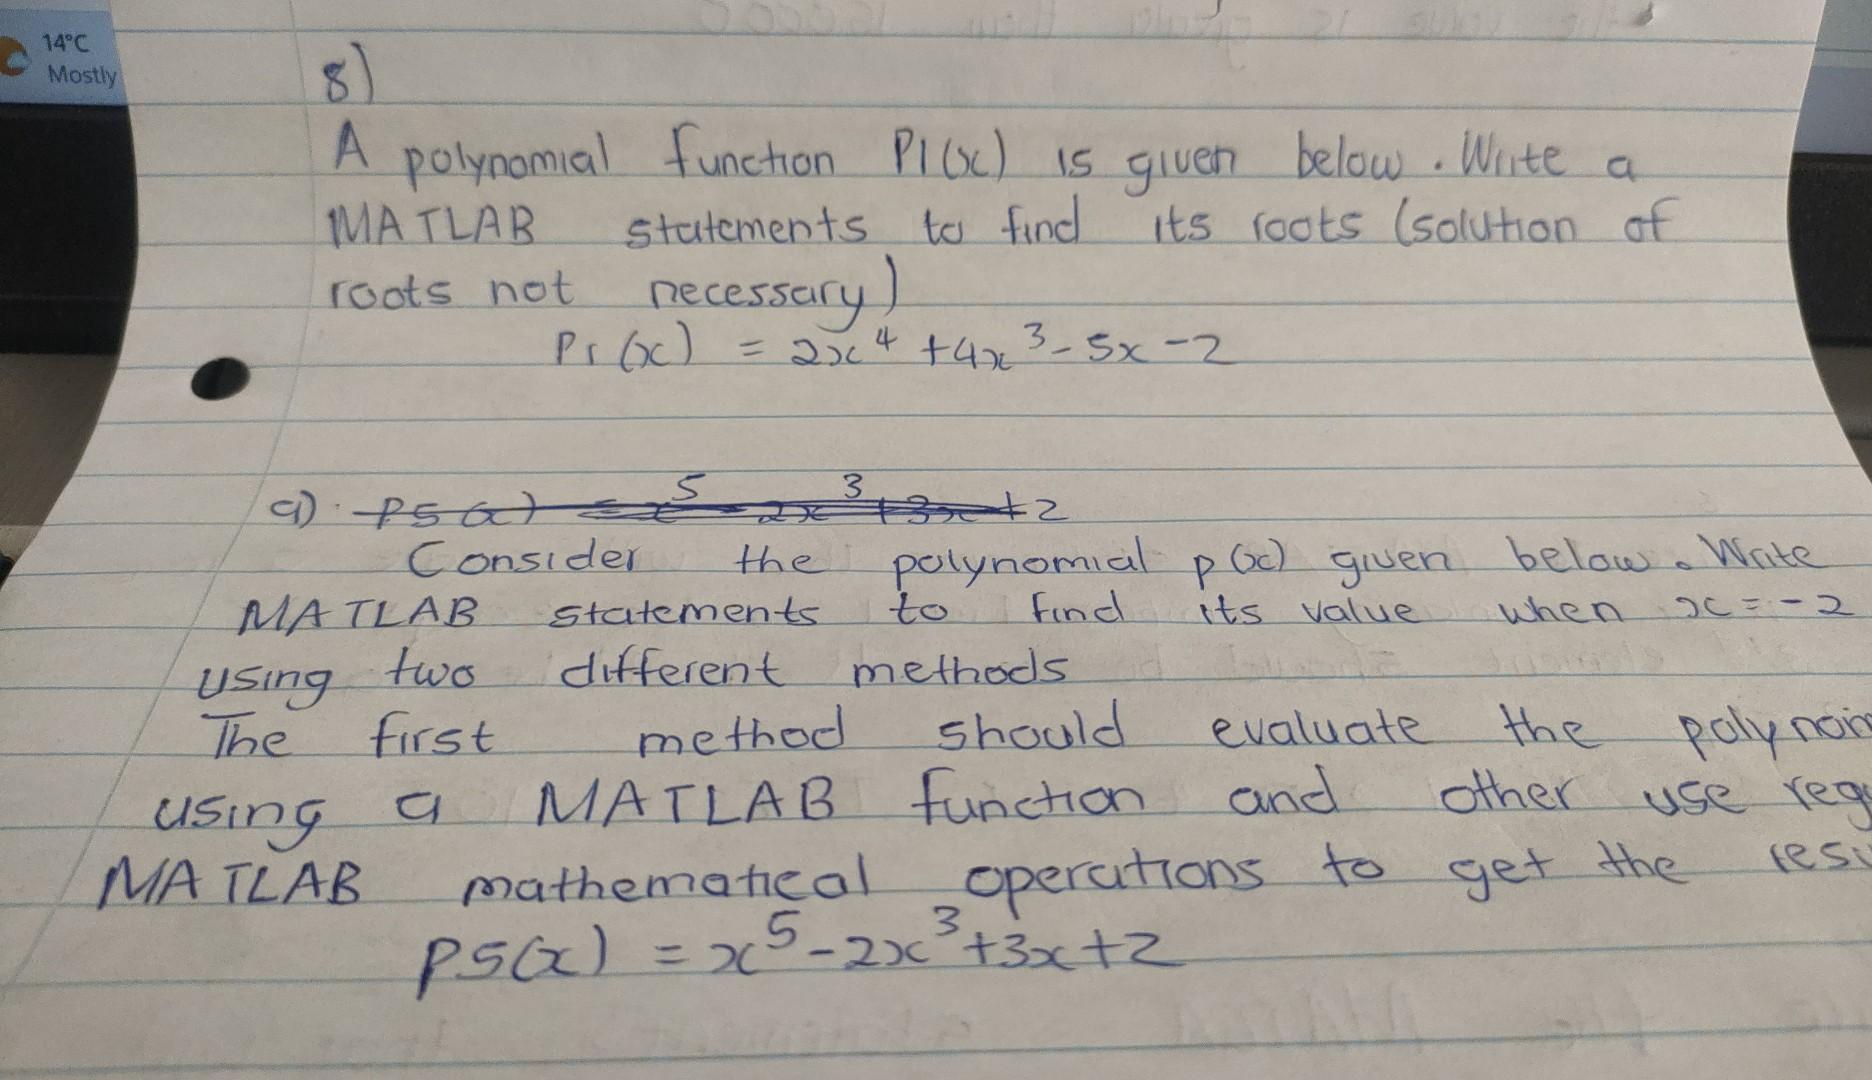 14°C
Mostly
8)
A polynomial function P1(x) is given below. Write a
MATLAB statements to find its roots (solution of
roots not necessary)
P1(x) = 2x⁴ + 4x³ - 5x - 2
a) P5(x) = x⁵ - 2x³ + 3x + 2
Consider the polynomial p(x) given below. Write
MATLAB statements to find its value when x = -2
using two different methods
The first method should evaluate the
using a MATLAB function and other use
MATLAB mathematical operations to get the
P5(x) = x⁵ - 2x³ + 3x + 2